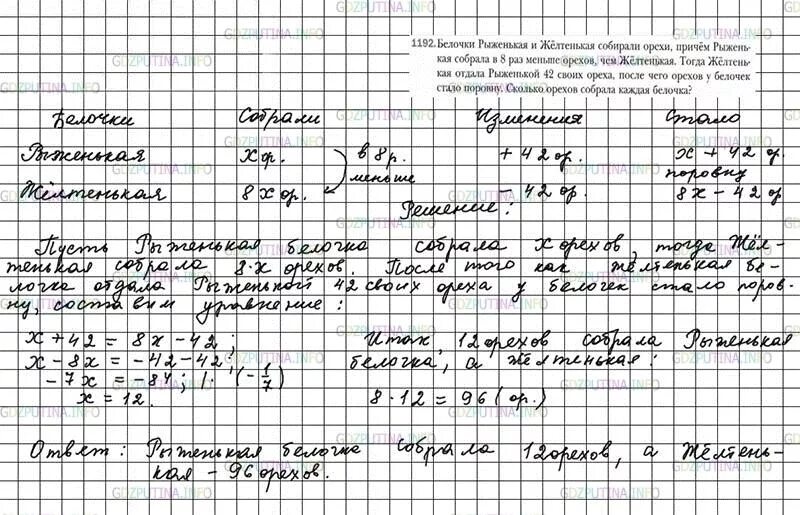 GDZPUTINA.INFO
1192. Белочки Рыженькая и Жёлтенькая собирали орехи, причём Рыжень-
кая собрала в 8 раз меньше орехов, чем Жёлтенькая. Тогда Жёлтень-
кая отдала Рыженькой 42 своих ореха, после чего орехов у белочек
стало поровну. Сколько орехов собрала каждая белочка?
Белочки Собрали Изменения Стало
Рыженькая x ор. в 8 р. + 42 ор. x + 42 ор.
меньше поровну
Жёлтенькая 8x ор. - 42 ор. 8x - 42 ор
Решение:
Пусть Рыженькая белочка собрала x орехов, тогда Жёл-
тенькая собрала 8·x орехов. После того как жёлтенькая бе-
лочка отдала Рыженькой 42 своих ореха у белочек стало поров-
ну, составим уравнение:
x + 42 = 8x - 42; Итак, 12 орехов собрала Рыженькая
x - 8x = -42 - 42; белочка, а жёлтенькая:
-7x = -84; |· (-1/7)
x = 12. 8 · 12 = 96 (ор.)
Ответ: Рыженькая белочка собрала 12 орехов, а Жёлтень-
кая - 96 орехов.